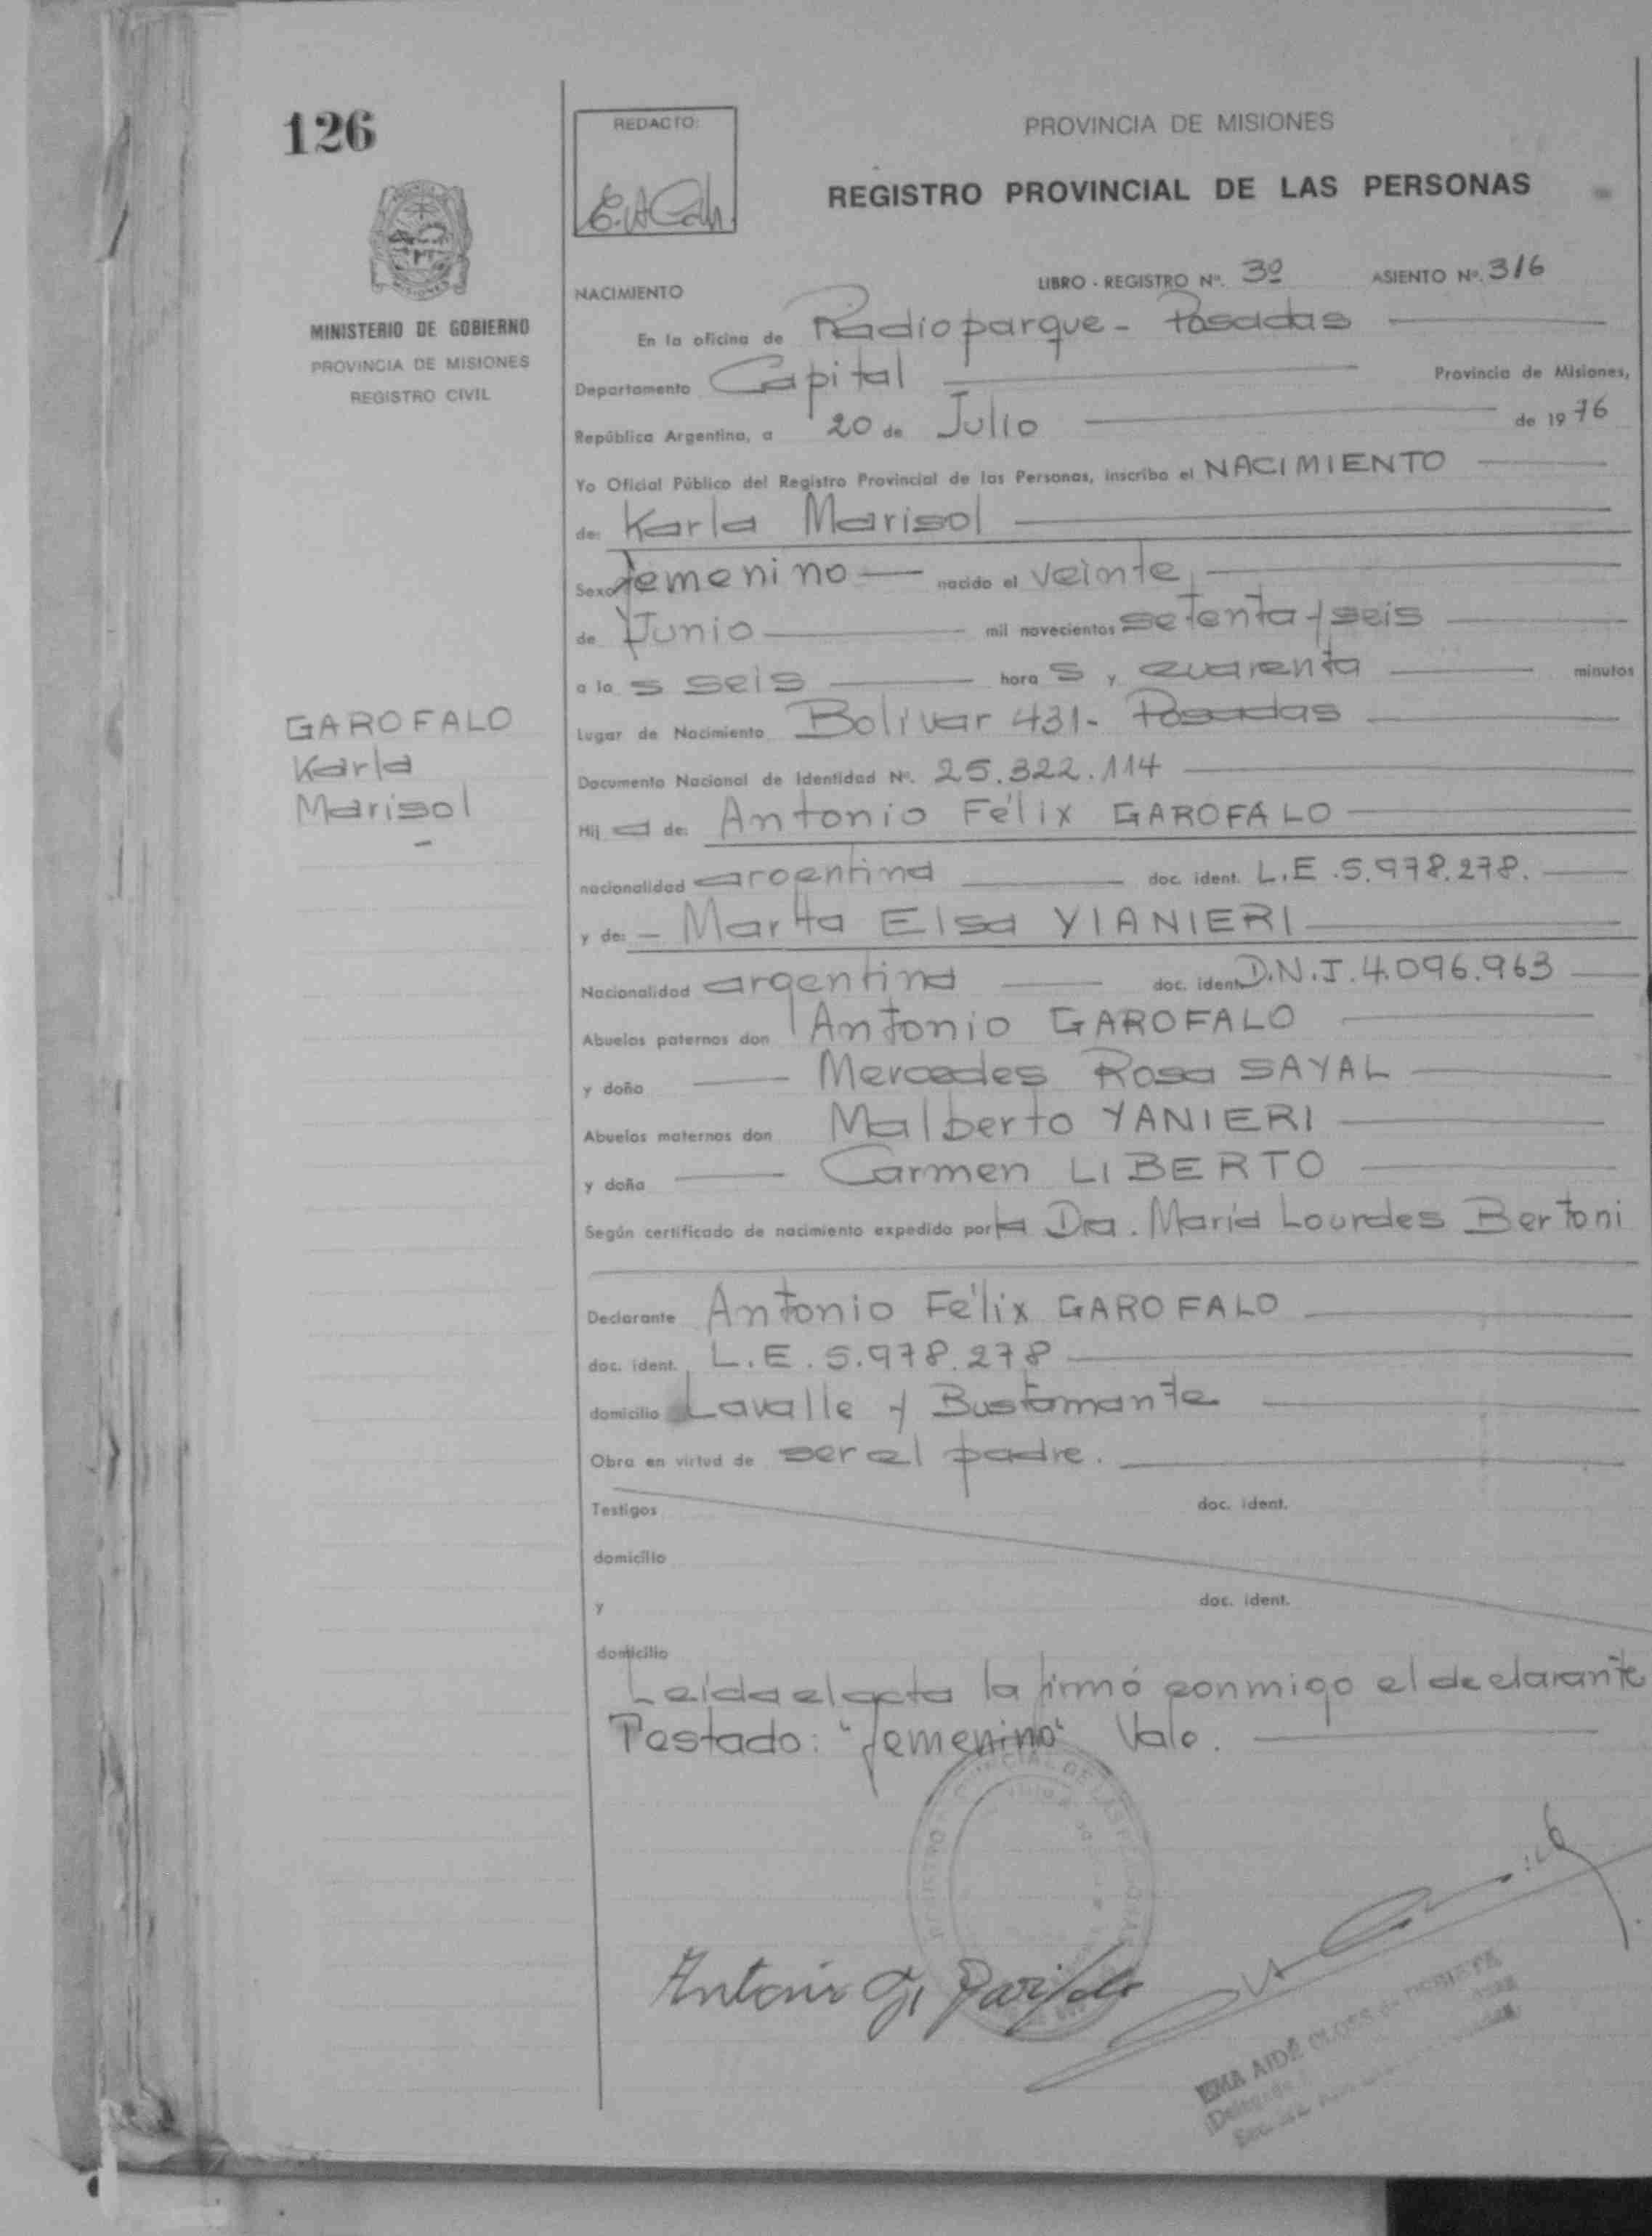 126
MINISTERIO DE GOBIERNO
PROVINCIA DE MISIONES
REGISTRO CIVIL
GAROFALO
Karla
Marisol
REDACTO:
PROVINCIA DE MISIONES
REGISTRO PROVINCIAL DE LAS PERSONAS
NACIMIENTO LIBRO - REGISTRO Nº. 3º ASIENTO Nº. 316
En la oficina de Radioparque - Posadas
Departamento Capital Provincia de Misiones,
República Argentina, a 20 de Julio de 1976
Yo Oficial Público del Registro Provincial de las Personas, inscribo el NACIMIENTO
de: Karla Marisol
Sexo femenino nacido el veinte
de Junio mil novecientos setenta y seis
a la s seis hora s y cuarenta minutos
Lugar de Nacimiento Bolivar 431 - Posadas
Documento Nacional de Identidad Nº. 25.322.114
Hij a de: Antonio Félix GAROFALO
nacionalidad argentina doc. ident. L.E. 5.978.278.
y de: - Marta Elsa YIANIERI
Nacionalidad argentina doc. ident. D.N.I. 4.096.963
Abuelos paternos don Antonio GAROFALO
y doña Mercedes Rosa SAYAL
Abuelos maternos don Malberto YANIERI
y doña Carmen LIBERTO
Según certificado de nacimiento expedido por la Dra. María Lourdes Bertoni
Declarante Antonio Félix GAROFALO
doc. ident. L.E. 5.978.278
domicilio Lavalle y Bustamante
Obra en virtud de ser el padre.
Testigos doc. ident.
domicilio
y doc. ident.
domicilio
Leida el acta la firmó conmigo el declarante
Testado: "femenino" Vale.
EMA AIDÉ